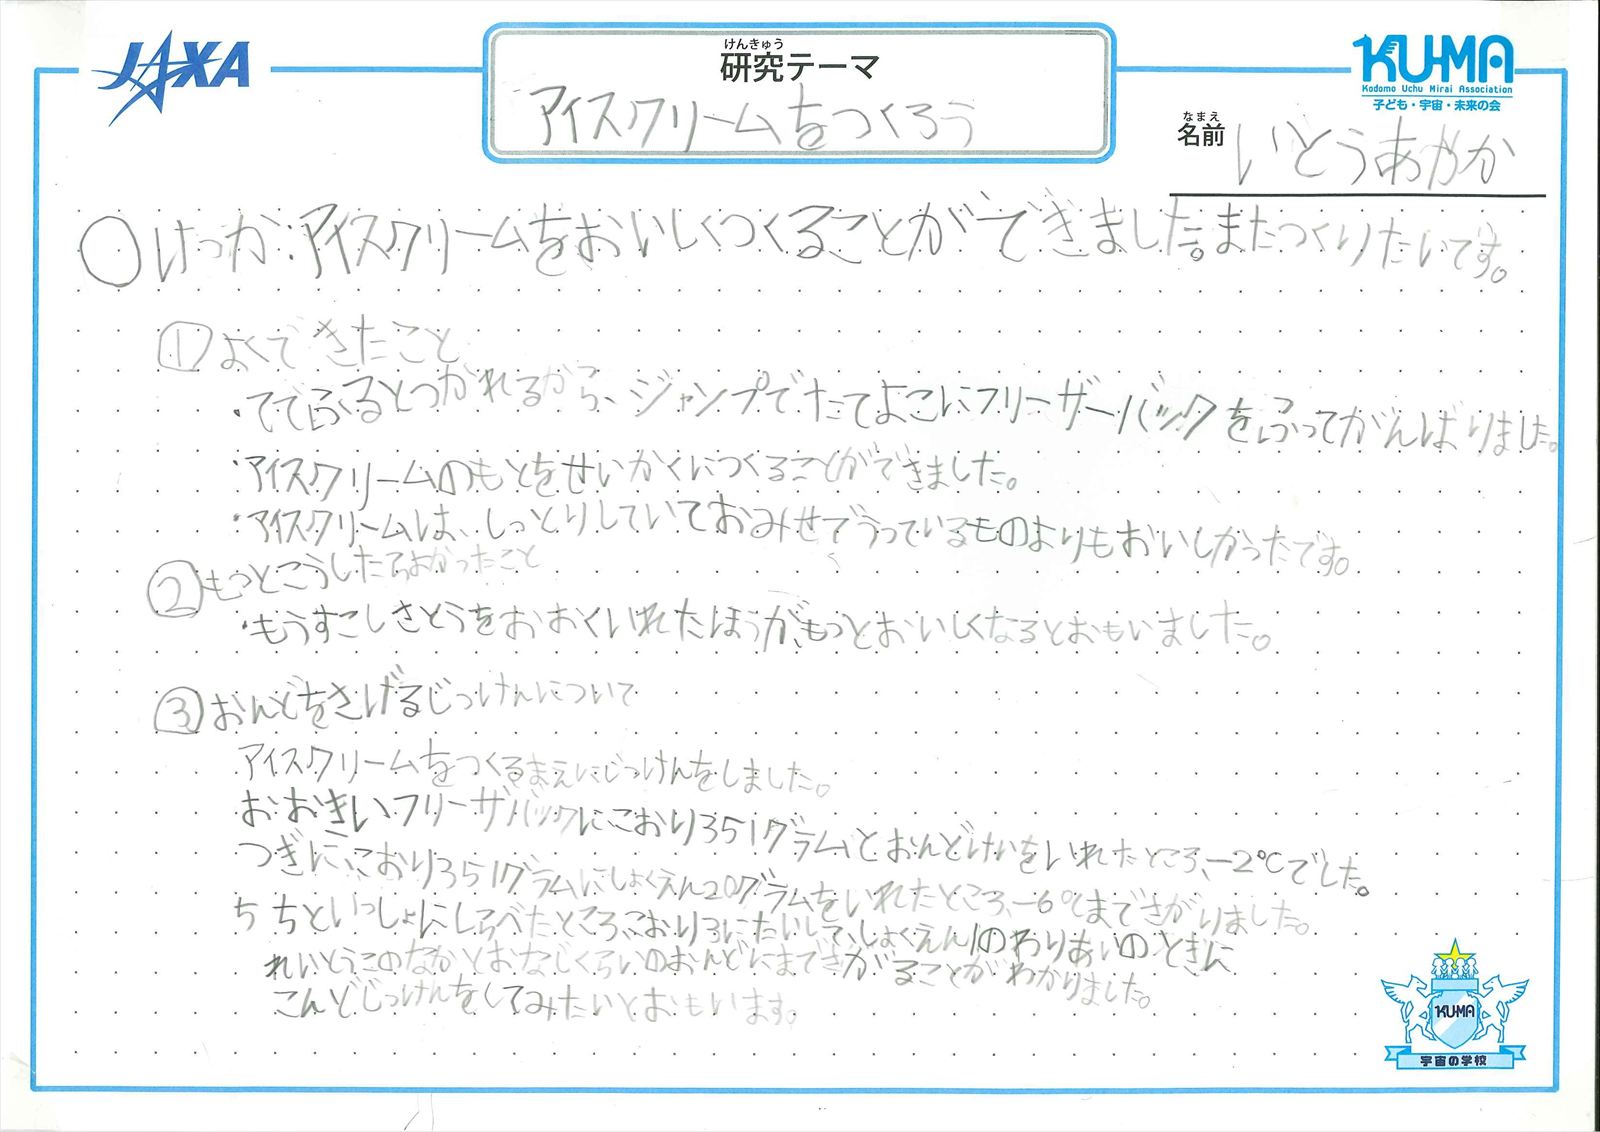 JAXA
けんきゅう
研究テーマ
アイスクリームをつくろう
KU-MA
Kodomo Uchu Mirai Association
子ども・宇宙・未来の会
なまえ
名前 いとうあやか
○けっか:アイスクリームをおいしくつくることができました。またつくりたいです。
①よくできたこと
・てでふるとつかれるから、ジャンプでたてよこにフリーザーバックをふってがんばりました。
・アイスクリームのもとをせいかくにつくることができました。
・アイスクリームは、しっとりしていておみせでうっているものよりもおいしかったです。
②もっとこうしたらよかったこと
・もうすこしさとうをおおくいれたほうが、もっとおいしくなるとおもいました。
③おんどをさげるじっけんについて
アイスクリームをつくるまえにじっけんをしました。
おおきいフリーザバックにこおり351グラムとおんどけいをいれたところ、-2℃でした。
つぎに、こおり351グラムにしょくえん20グラムをいれたところ、-6℃までさがりました。
ちちといっしょにしらべたところ、こおり3にたいして、しょくえん1のわりあいのときに
れいとうこのなかとおなじくらいのおんどにまでさがることがわかりました。
こんどじっけんをしてみたいとおもいます。
KU-MA
宇宙の学校